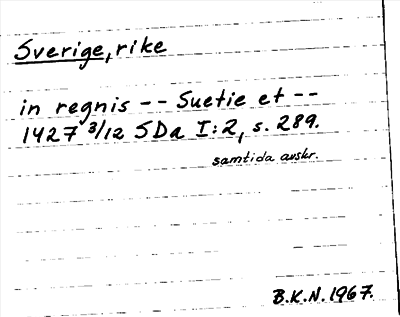 Sverige, rike
in regnis -- Suetie et --
1427 3/12 SDa I:2, s. 289.
samtida avskr.
B.K.N. 1967.